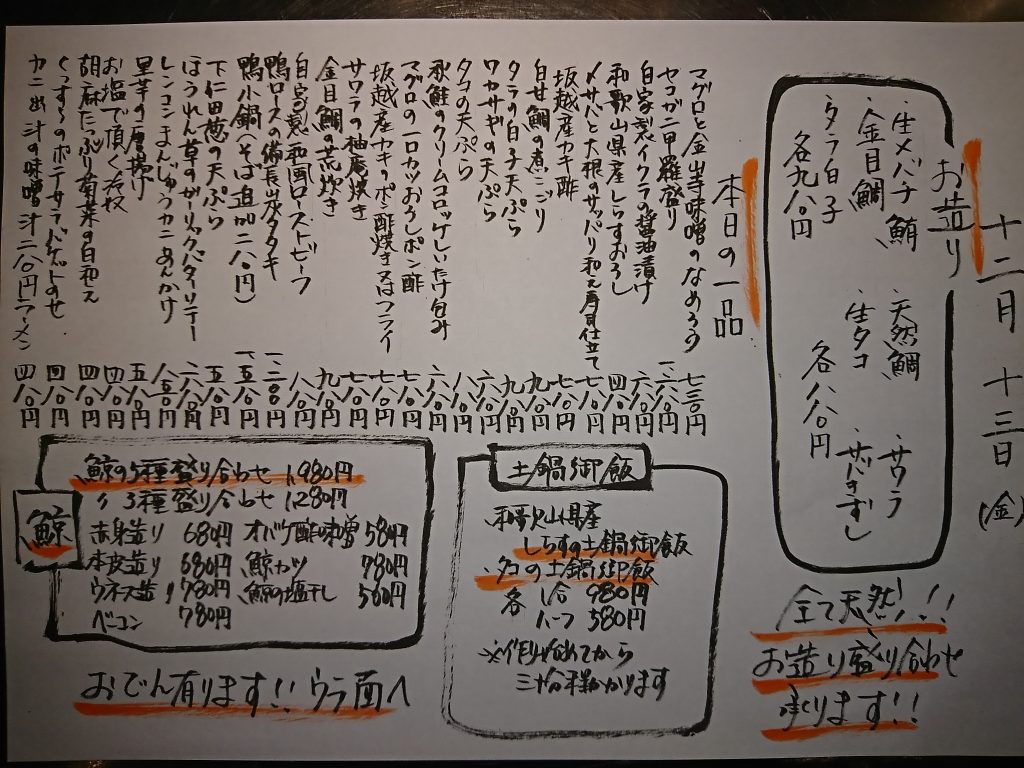 十二月 十三日 (金)
お造り
・生メバチ鮪
・金目鯛
・タラ白子
各九八〇円
・天然鯛
・生タコ
各八八〇円
・サワラ
・サバきずし
全て天然!!!
お造り盛り合わせ
承ります!!
本日の一品
マグロと金山寺味噌のなめろう 七三〇円
セコガニ甲羅盛り
自家製イクラの醤油漬け 六八〇円
和歌山県産しらすおろし 四八〇円
〆サバと大根のサッパリ和え寿司仕立て 七八〇円
坂越産カキ酢 七八〇円
白甘鯛の煮こごり 九八〇円
タラの白子天ぷら 九八〇円
ワカサギの天ぷら 六八〇円
タコの天ぷら 八八〇円
秋鮭のクリームコロッケしいたけ包み 六八〇円
マグロの一口カツおろしポン酢 七八〇円
坂越産カキのポン酢焼き又はフライ 七八〇円
サワラの柚庵焼き 七八〇円
金目鯛の荒炊き 九八〇円
自家製和風ローストビーフ 八八〇円
鴨ロースの備長炭タタキ 一、二〇〇円
鴨小鍋(そば追加二八〇円) 一、五八〇円
下仁田葱の天ぷら 六八〇円
ほうれん草のガーリックバターソテー 六八〇円
レンコンまんじゅうカニあんかけ 八五〇円
里芋の唐揚げ 五八〇円
お塩で頂く若板 四八〇円
胡麻たっぷり菊菜の白和え 四八〇円
くずきりのポテサラバゲットのせ 四八〇円
カニ出汁の味噌汁二八〇円ラーメン 四八〇円
土鍋御飯
和歌山県産
しらすの土鍋御飯
・タコの土鍋御飯
各 1合 980円
ハーフ 580円
※作り始めてから
三十分程かかります
鯨
鯨の5種盛り合わせ 1,980円
〃 3種盛り合わせ 1,280円
赤身造り 680円 オバケ酢味噌 580円
本皮造り 680円 鯨カツ 780円
ウネス造り 780円 鯨の塩干し 560円
ベーコン 780円
おでん有ります!! ウラ面へ